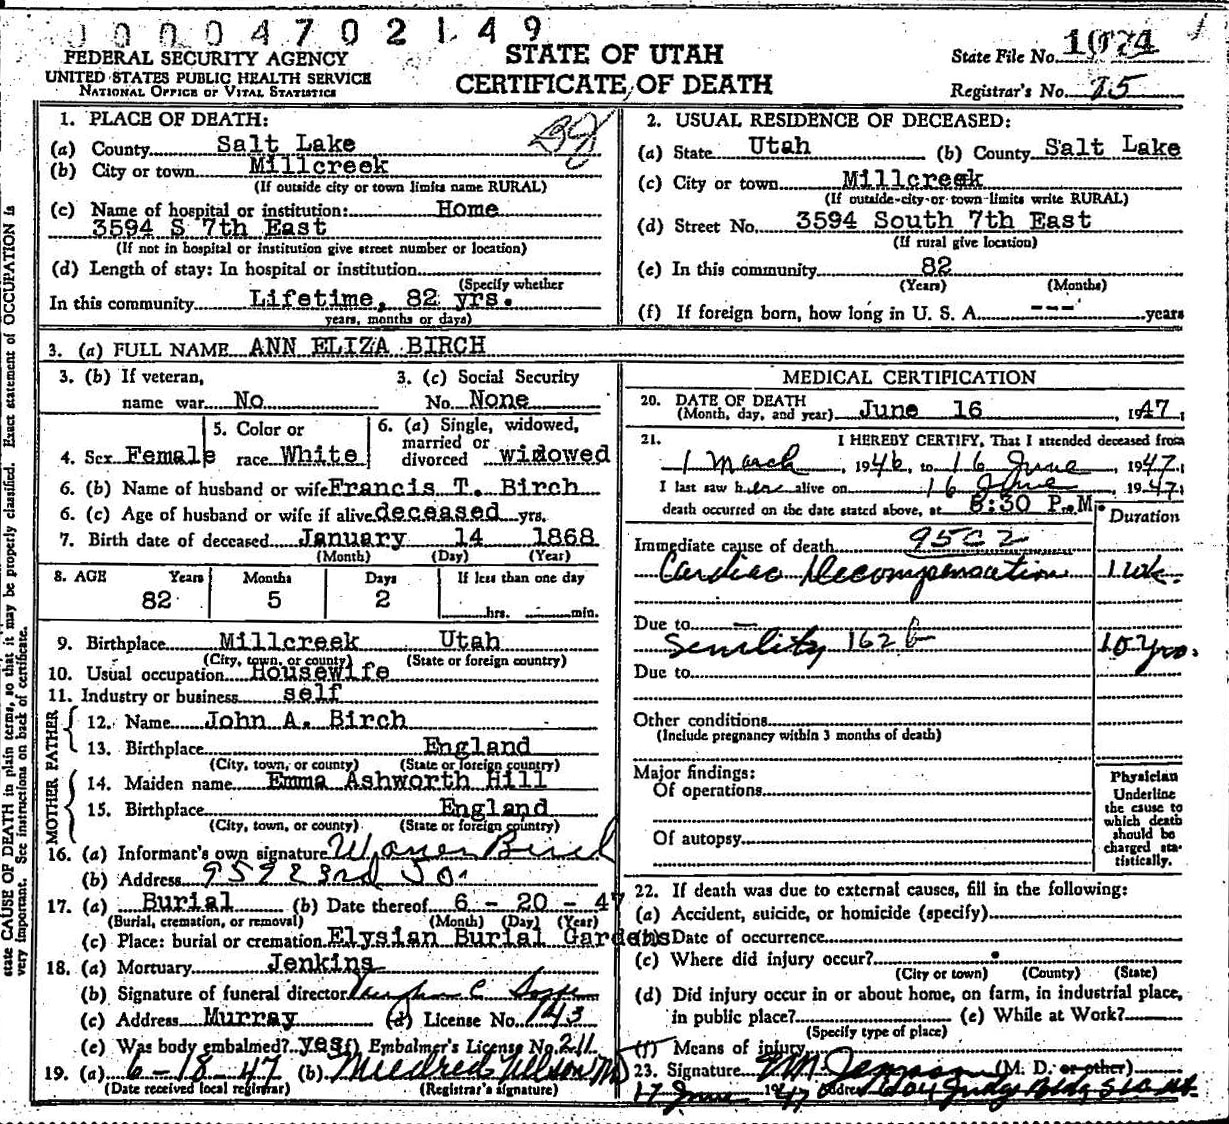 0 0 0 0 4 7 0 2 1 4 9
FEDERAL SECURITY AGENCY
UNITED STATES PUBLIC HEALTH SERVICE
NATIONAL OFFICE OF VITAL STATISTICS
STATE OF UTAH
CERTIFICATE OF DEATH
State File No. 1074
Registrar's No. 75
1. PLACE OF DEATH:
(a) County Salt Lake
(b) City or town Millcreek
(If outside city or town limits name RURAL)
(c) Name of hospital or institution: Home
3594 S 7th East
(If not in hospital or institution give street number or location)
(d) Length of stay: In hospital or institution
(Specify whether
In this community Lifetime, 82 yrs.
years, months or days)
2. USUAL RESIDENCE OF DECEASED:
(a) State Utah (b) County Salt Lake
(c) City or town Millcreek
(If outside city or town limits write RURAL)
(d) Street No. 3594 South 7th East
(If rural give location)
(e) In this community 82
(Years) (Months)
(f) If foreign born, how long in U. S. A. --- years
3. (a) FULL NAME ANN ELIZA BIRCH
3. (b) If veteran, 3. (c) Social Security
name war No No. None
4. Sex Female
5. Color or
race White
6. (a) Single, widowed,
married or
divorced widowed
6. (b) Name of husband or wife Francis T. Birch
6. (c) Age of husband or wife if alive deceased yrs.
7. Birth date of deceased January 14 1868
(Month) (Day) (Year)
8. AGE Years Months Days If less than one day
82 5 2 hrs. min.
9. Birthplace Millcreek Utah
(City, town, or county) (State or foreign country)
10. Usual occupation Housewife
11. Industry or business self
FATHER
12. Name John A. Birch
13. Birthplace England
(City, town, or county) (State or foreign country)
MOTHER
14. Maiden name Emma Ashworth Hill
15. Birthplace England
(City, town, or county) (State or foreign country)
16. (a) Informant's own signature Birch
(b) Address 959 23rd So.
17. (a) Burial (b) Date thereof 6 - 20 - 47
(Burial, cremation, or removal) (Month) (Day) (Year)
(c) Place: burial or cremation Elysian Burial Gardens
18. (a) Mortuary Jenkins
(b) Signature of funeral director
(c) Address Murray (d) License No. 143
(e) Was body embalmed? yes (f) Embalmer's License No. 211
19. (a) 6-18-47 (b) Mildred Nelson MD
(Date received local registrar) (Registrar's signature)
MEDICAL CERTIFICATION
20. DATE OF DEATH
(Month, day, and year) June 16, 1947
21. I HEREBY CERTIFY, That I attended deceased from
1 March, 1946, to 16 June, 1947
I last saw her alive on 16 June, 1947
death occurred on the date stated above, at 8:30 P.M.
Duration
Immediate cause of death 95C2
Cardiac Decompensation 1 wk.
Due to
Senility 162b 10 yrs.
Due to
Other conditions
(Include pregnancy within 3 months of death)
Major findings:
Of operations
Of autopsy
Physician
Underline
the cause to
which death
should be
charged sta-
tistically.
22. If death was due to external causes, fill in the following:
(a) Accident, suicide, or homicide (specify)
(b) Date of occurrence
(c) Where did injury occur?
(City or town) (County) (State)
(d) Did injury occur in or about home, on farm, in industrial place,
in public place? (e) While at Work?
(Specify type of place)
(f) Means of injury
23. Signature (M. D. or other)
17 June 1947 Address Judge Bldg
state CAUSE OF DEATH in plain terms, so that it may be properly classified. Exact statement of OCCUPATION is
very important. See instructions on back of certificate.